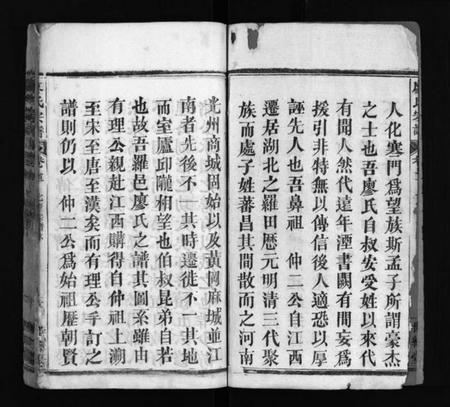 人化寒門爲望族斯孟子所謂豪杰
之士也吾廖氏自叔安受姓以來代
有聞人然代遠年湮書闕有間妄爲
援引非特無以傳信後人適恐以厚
誣先人也吾鼻祖 仲二公自江西
遷居湖北之羅田歷元明清三代聚
族而處子姓蕃昌其間散而之河南
光州商城固始以及黃岡麻城並江
南者先後不一其時遷徙不一其地
而室廬邱隴相望也伯叔昆弟自若
也故吾羅邑廖氏之譜其圖系雖由
有理公親赴江西購得自仲祖上溯
至宋至唐至漢矣而有理公手訂之
譜則仍以 仲二公爲始祖歷朝賢